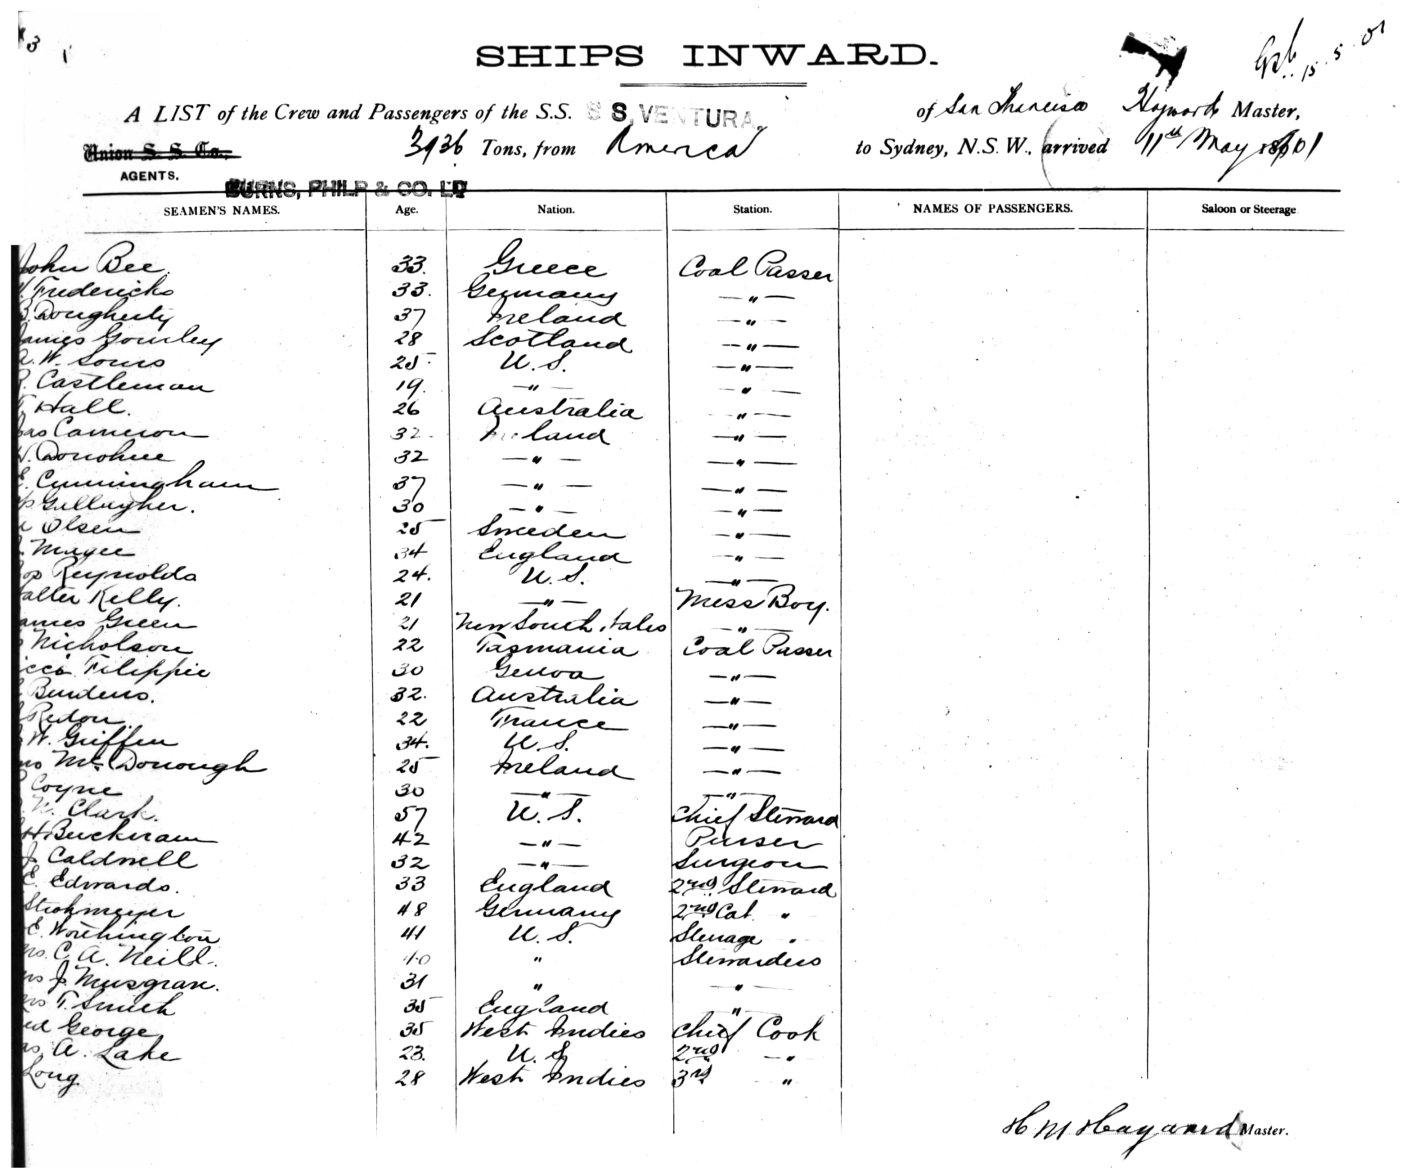 3
Gsb. 15.5.01
SHIPS INWARD.
A LIST of the Crew and Passengers of the S.S. S S. VENTURA. of San Francisco Hayward Master,
Union S. S. Co., 3936 Tons, from America to Sydney, N.S.W., arrived 11th May 1901
AGENTS.
BURNS, PHILP & CO. LD
SEAMEN'S NAMES. Age. Nation. Station. NAMES OF PASSENGERS. Saloon or Steerage
John Bee. 33. Greece Coal Passer
Fredericks 33. Germany — " —
Dougherty 37 Ireland — " —
James Gourley 28 Scotland — " —
W. Sours 25. U.S. — " —
Castleman 19. — " — — " —
Hall. 26 Australia — " —
Jas Cameron 32. Ireland — " —
Donohue 32 — " — — " —
Cunningham 37 — " — — " —
Gallagher. 30 — " — — " —
Olsen 25 Sweden — " —
Magee 34 England — " —
Reynolds 24. U.S. — " —
alter Kelly. 21 — " — Mess Boy.
ames Green 21 New South Wales — " —
Nicholson 22 Tasmania Coal Passer
Filippie 30 Genoa — " —
Burdens. 32. Australia — " —
Redon. 22 France — " —
W. Griffen 34. U.S. — " —
McDonough 25 Ireland — " —
Coyne 30 — " — — " —
W. Clark. 57 U.S. Chief Steward
H. Buckman 42 — " — Purser
J. Caldwell 32 — " — Surgeon
E. Edwards. 33 England 2nd Steward
Strohmeyer 48 Germany 2nd Cab. "
E. Worthington 41 U.S. Steerage "
rs. C. A. Neill. 40 " Stewardess
rs J. Musgrave. 31 " — " —
rs T. Smith 35 England "
ed George 35 West Indies Chief Cook
as. A. Lake 23. U.S. 2nd — " —
Long. 28 West Indies 3rd "
H M Hayward Master.